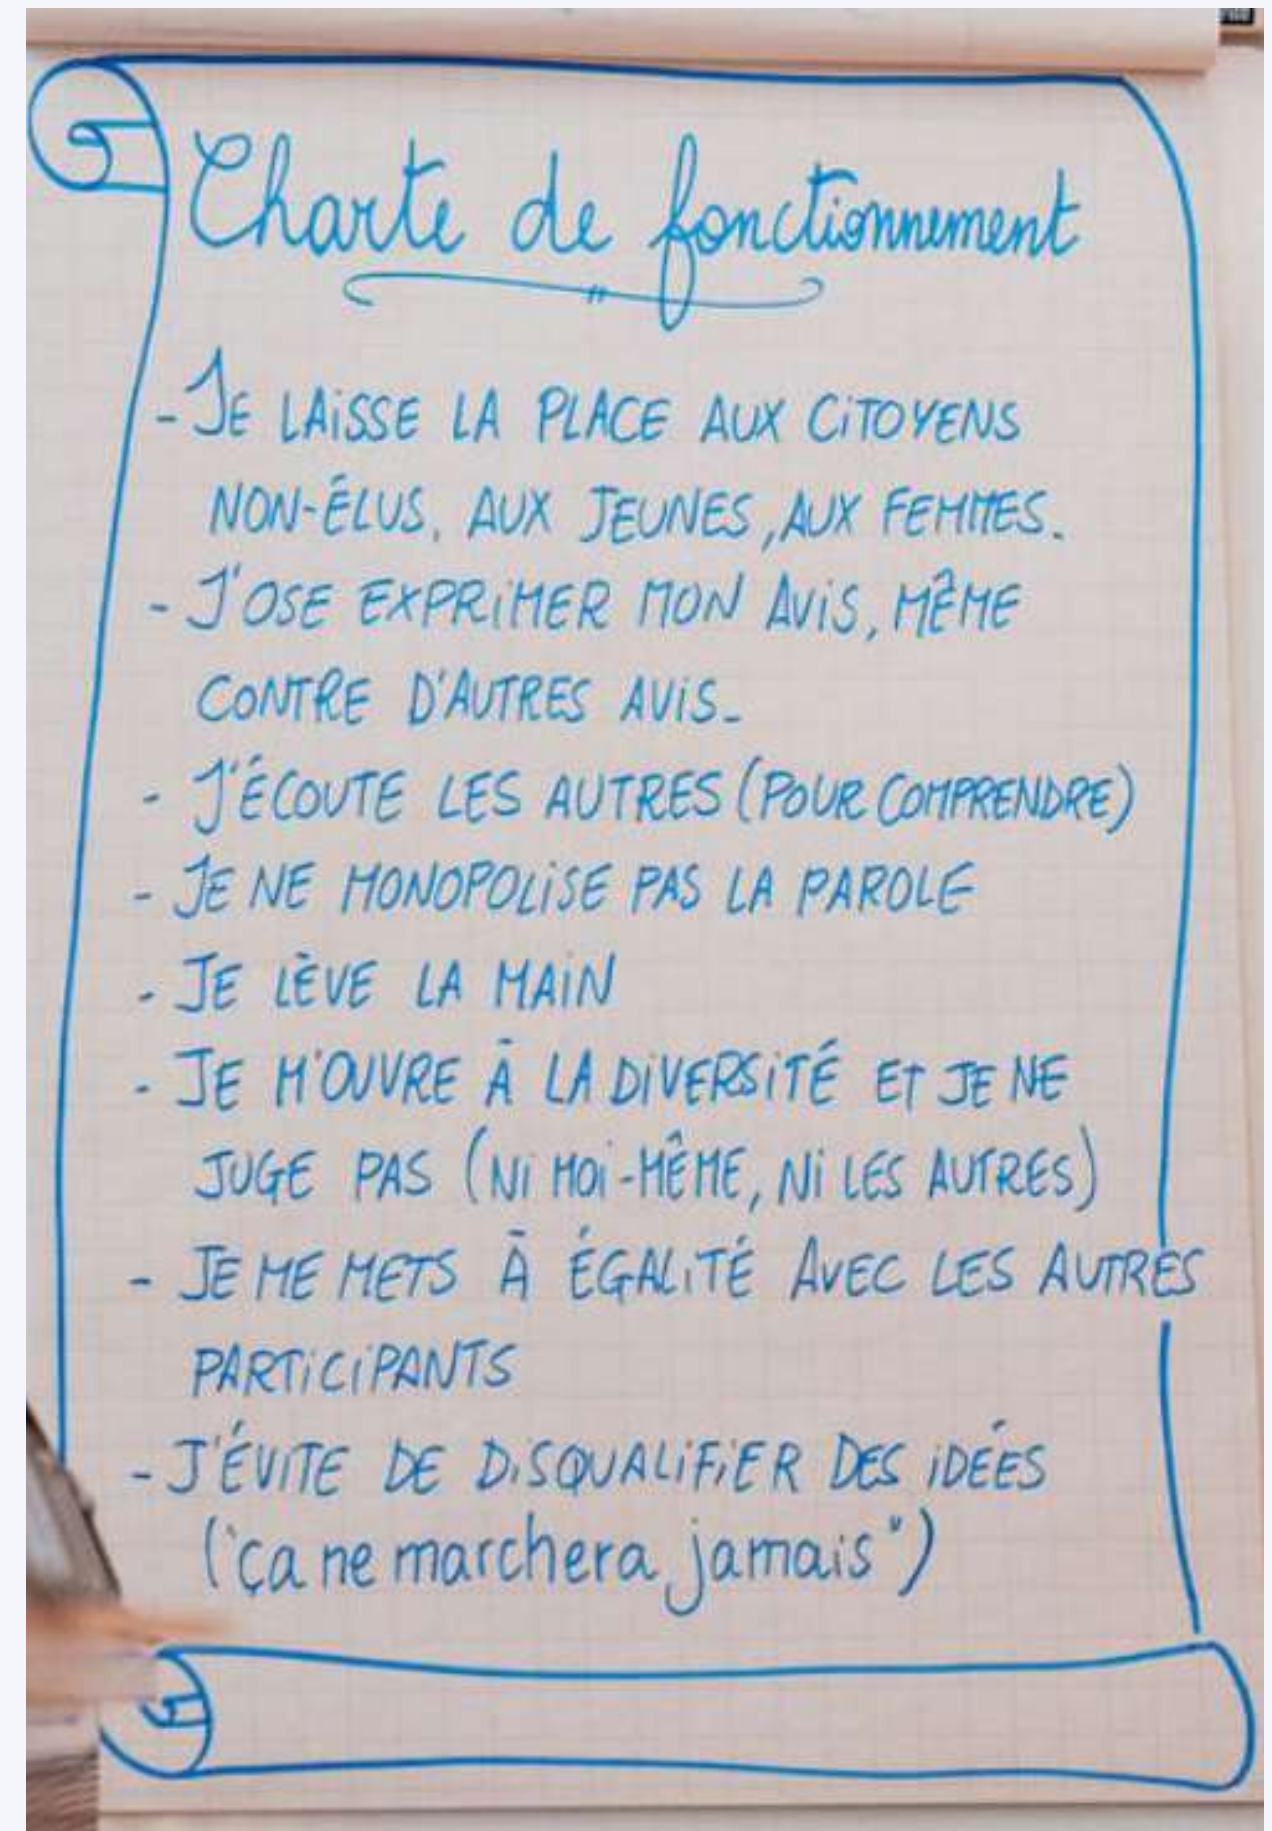 Charte de fonctionnement
- JE LAISSE LA PLACE AUX CITOYENS
NON-ÉLUS, AUX JEUNES, AUX FEMMES.
- J'OSE EXPRIMER MON AVIS, MÊME
CONTRE D'AUTRES AVIS.
- J'ÉCOUTE LES AUTRES (POUR COMPRENDRE)
- JE NE MONOPOLISE PAS LA PAROLE
- JE LÈVE LA MAIN
- JE M'OUVRE À LA DIVERSITÉ ET JE NE
JUGE PAS (NI MOI-MÊME, NI LES AUTRES)
- JE ME METS À ÉGALITÉ AVEC LES AUTRES
PARTICIPANTS
- J'ÉVITE DE DISQUALIFIER DES IDÉES
("ça ne marchera jamais")